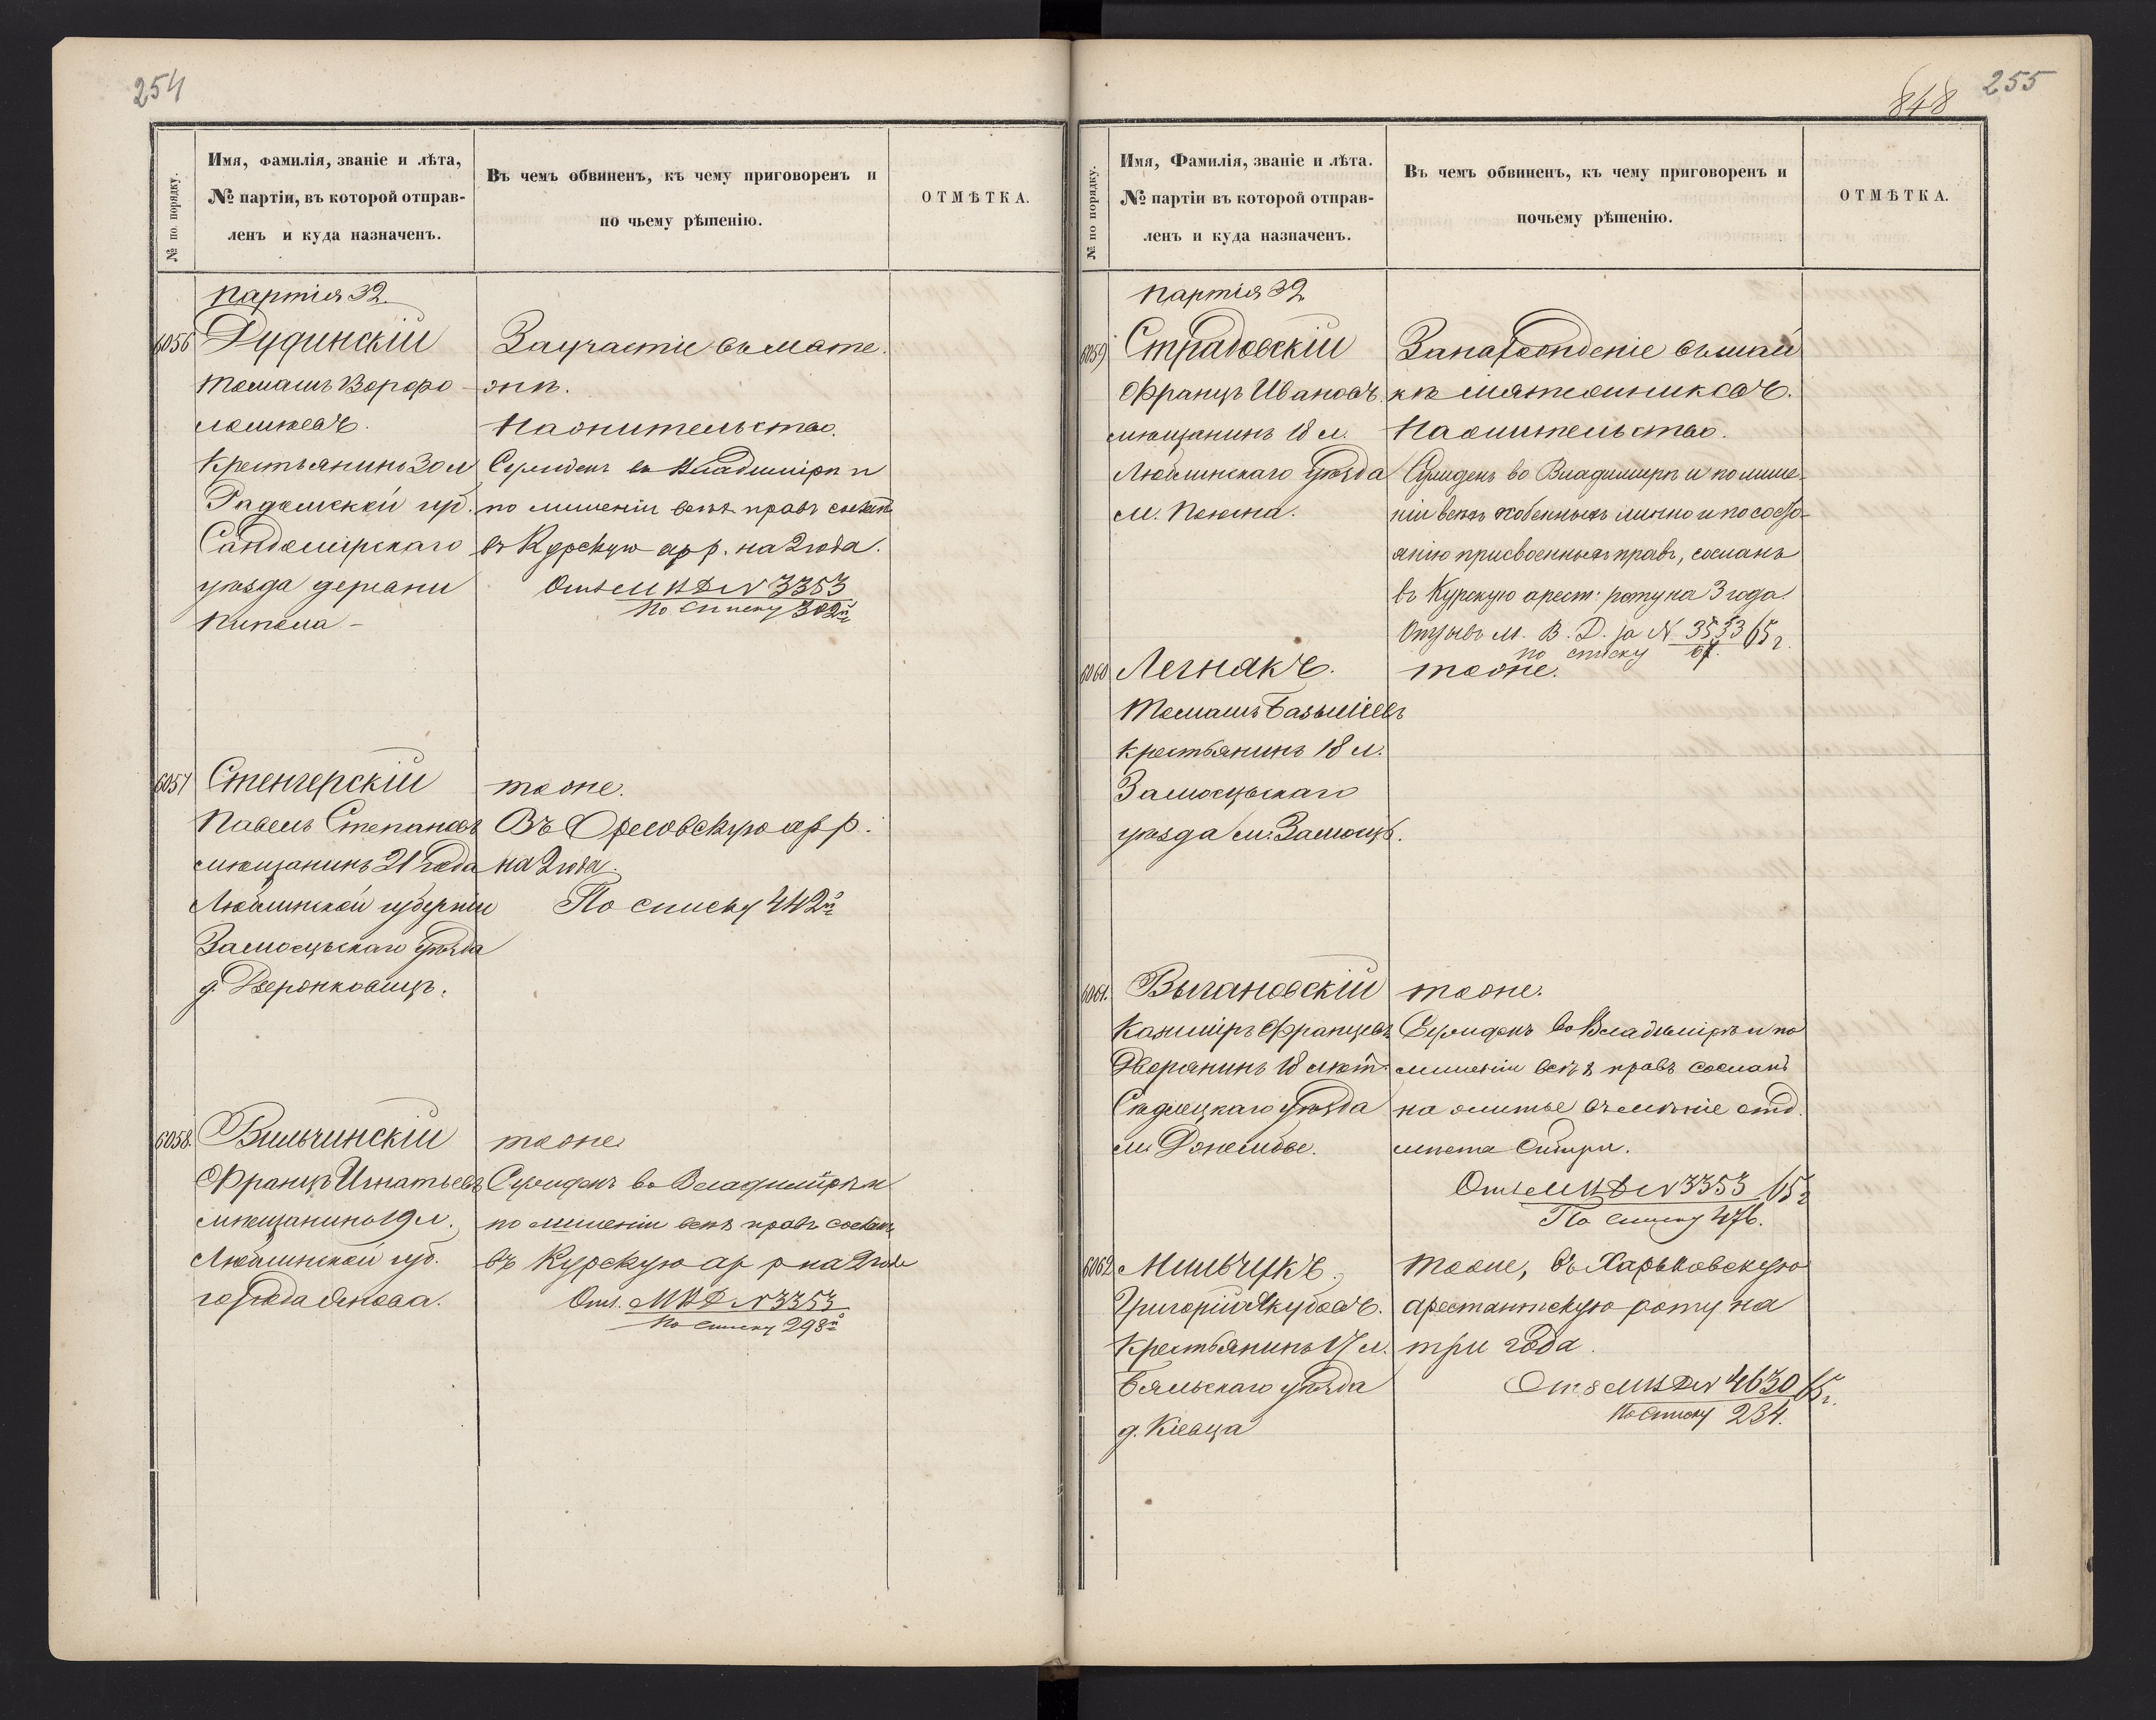 254
№ по порядку.
Имя, Фамилія, званіе и лѣта,
№ партіи, въ которой отправ-
ленъ и куда назначенъ.
Въ чемъ обвиненъ, къ чему приговоренъ и
по чьему рѣшенію.
ОТМѢТКА.
партія 32.
6056 Дудинскій
Томашъ
Крестьянинъ 30 л
Радомской гуд.
Сандомирскаго
уѣзда деревни
За участіе въ мяте
жѣ.
На жительство.
Сужденъ во Владимірѣ и
по лишеніи всѣхъ правъ
въ Курскую ар р. на 2 года.
Отз МВД N 3353
По списку 302й
6057 Стенгерскій
Павелъ Степановъ
мѣщанинъ 21 года
Люблинской губерніи
Замосцьскаго уѣзда
тоже.
Въ Орловскую ар р.
на 2 года
По списку 442й
6058. Вильчинскій
Францъ Игнатьевъ
мѣщанинъ 19 л.
Люблинской губ.
города Янова.
тоже
Сужденъ во Владимірѣ и
по лишеніи всѣхъ правъ сосланъ
въ Курскую ар р на 2 года
Отз. МВД N 3353
По списку 298й
848 255
№ по порядку.
Имя, Фамилія, званіе и лѣта.
№ партіи въ которой отправ-
ленъ и куда назначенъ.
Въ чемъ обвиненъ, къ чему приговоренъ и
почьему рѣшенію.
ОТМѢТКА.
партія 32
6059 Страдовскій
Францъ Ивановъ.
мѣщанинъ 18 л.
Люблинскаго уѣзда
За нахожденіе въ шай
кѣ мятежниковъ.
На жительство.
Сужденъ во Владимирѣ и по лише-
ніи всѣхъ особенныхъ лично и по состо-
янію присвоенныхъ правъ, сосланъ
въ Курскую арест: роту на 3 года.
Отзывъ М. В. Д. за N 3553 65 г.
по списку
6060 Легнякъ.
Томашъ
крестьянинъ 18 л.
Замосцьскаго
уѣзда м. Замосцъ.
тоже.
6061. Выгановскій
Казиміръ Францевъ
Дворянинъ 18 лѣт
Сѣдлецкаго уѣзда
тоже.
Сужденъ во Владимірѣ и по
лишеніи всѣхъ правъ сосланъ
на житье въ менѣе отд.
мѣста Сибири.
Отз МВД N 3353 65 г
По списку 476.
6062 Мильчукъ,
Григорій Якубовъ.
Крестьянинъ 17 л.
Бяльскаго уѣзда
тоже, въ Харьковскую
арестантскую роту на
три года.
Отз МВД N 4630 65 г.
По списку 234.